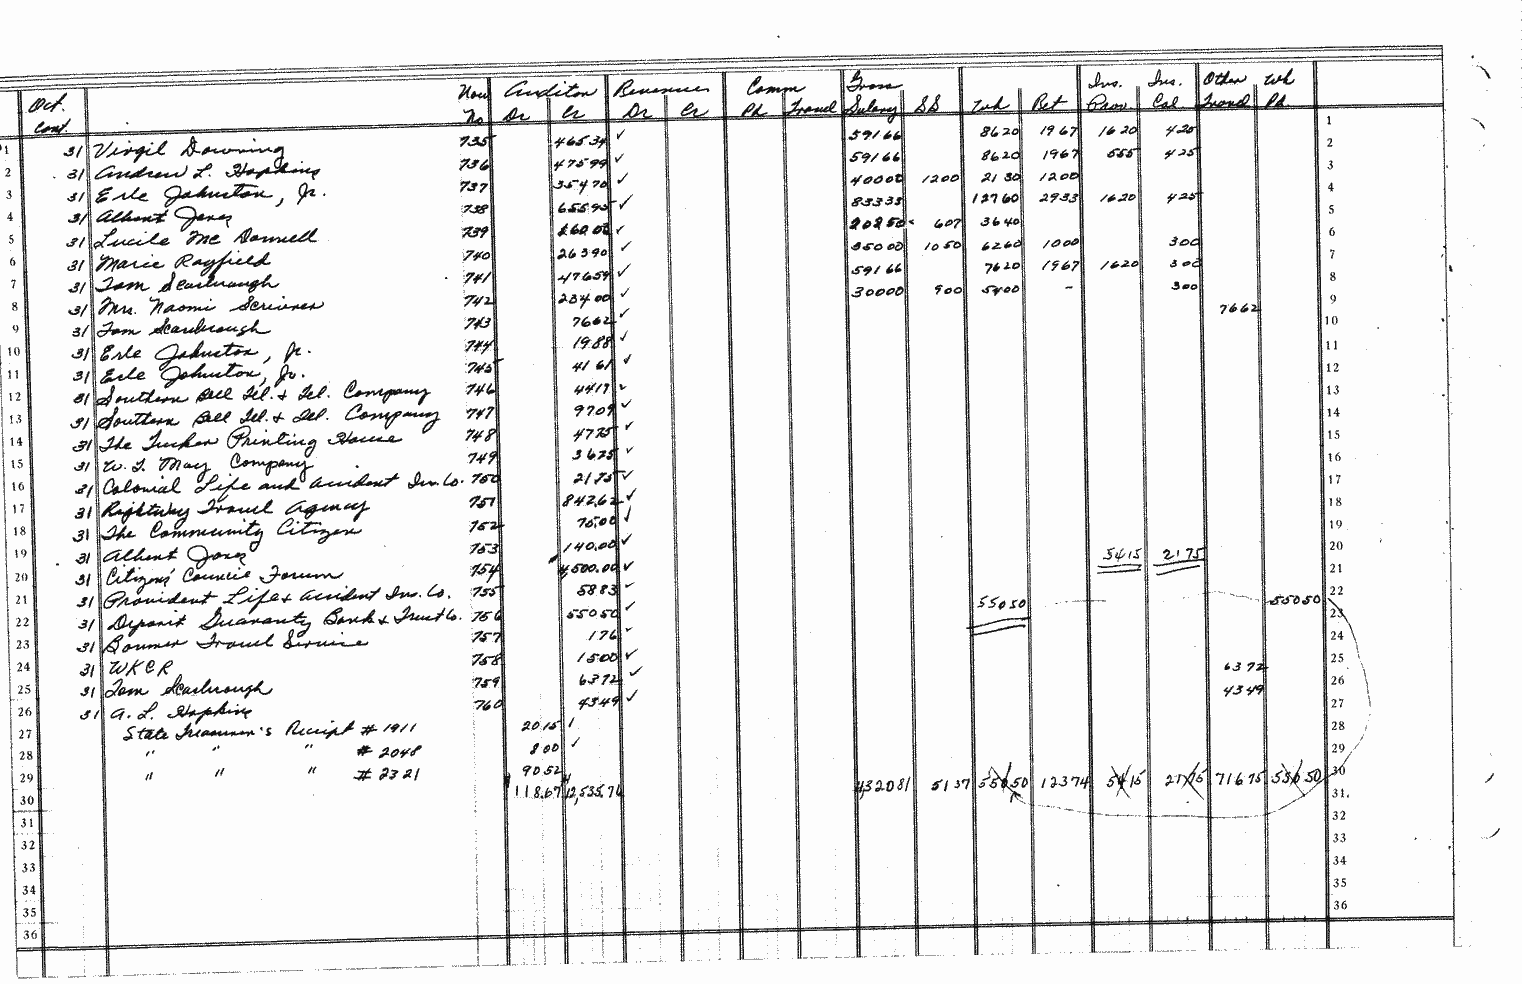 Oct. cont. Nov No Auditor Dr Cr Revenues Dr Cr Comm Pd Travel Gross Salary SS Wh Ret Ins. Prov. Ins. Col Other Travel Wh Pd
1 31 Virgil Downing 735 465 34 ✓ 591 66 86 20 19 67 16 20 4 25 1
2 31 Andrew L. Hopkins 736 475 99 ✓ 591 66 86 20 19 67 5 55 4 25 2
3 31 Erle Johnston, Jr. 737 354 70 ✓ 400 00 12 00 21 30 12 00 3
4 31 Albert Jones 738 655 95 ✓ 833 33 127 60 29 33 16 20 4 25 4
5 31 Lucile Mc Donnell 739 160 00 ✓ 202 50 6 07 36 40 5
6 31 Marie Rayfield 740 263 90 ✓ 350 00 10 50 62 60 10 00 3 00 6
7 31 Tom Scarbrough 741 476 59 ✓ 591 66 76 20 19 67 16 20 3 00 7
8 31 Mrs. Naomi Scrivner 742 234 00 ✓ 300 00 9 00 54 00 - 3 00 8
9 31 Tom Scarbrough 743 76 62 ✓ 76 62 9
10 31 Erle Johnston, Jr. 744 19 88 ✓ 10
11 31 Erle Johnston, Jr. 745 41 61 ✓ 11
12 31 Southern Bell Tel. & Tel. Company 746 44 17 ✓ 12
13 31 Southern Bell Tel. & Tel. Company 747 97 09 ✓ 13
14 31 The Tucker Printing House 748 47 75 ✓ 14
15 31 W. T. May Company 749 36 75 ✓ 15
16 31 Colonial Life and Accident Ins. Co. 750 21 75 ✓ 16
17 31 Rightway Travel Agency 751 842.62 ✓ 17
18 31 The Community Citizen 752 75.00 ✓ 18
19 31 Albert Jones 753 140.00 ✓ 19
20 31 Citizens' Council Forum 754 4,500.00 ✓ 54 15 21 75 20
21 31 Provident Life & Accident Ins. Co. 755 58 83 ✓ 21
22 31 Deposit Guaranty Bank & Trust Co. 756 550 50 ✓ 550 50 550 50 22
23 31 Boumer Travel Service 757 1 76 ✓ 23
24 31 WKCR 758 15 00 ✓ 24
25 31 Tom Scarbrough 759 63 72 ✓ 63 72 25
26 31 A. L. Hopkins 760 43 49 ✓ 43 49 26
27 State Treasurer's Receipt # 1911 20 15 ✓ 27
28 " " " # 2048 8 00 ✓ 28
29 " " " # 2321 90 52 29
30 118.67 12,535.76 4320 81 51 37 550 50 123 74 54 15 21 75 716 75 550 50 30
31 31.
32 32
33 33
34 34
35 35
36 36